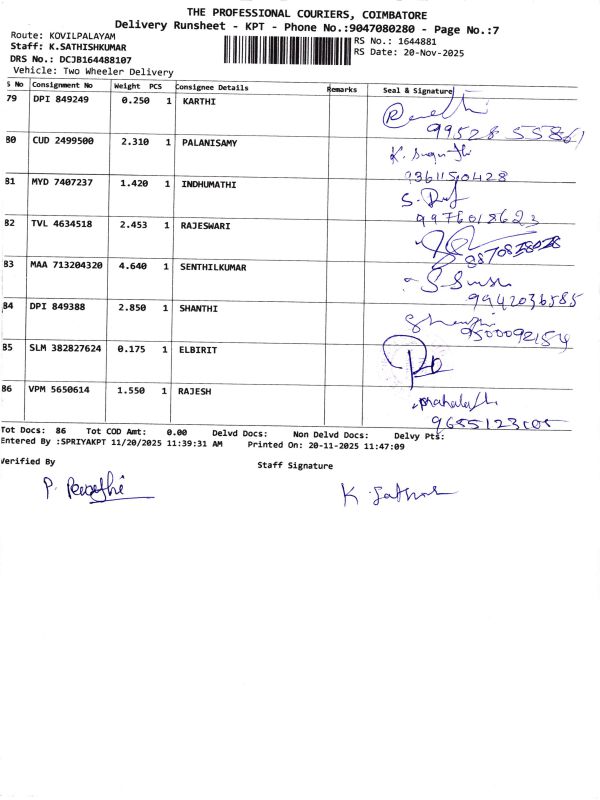 THE PROFESSIONAL COURIERS, COIMBATORE
Delivery Runsheet - KPT - Phone No.:9047080280 - Page No.:7
Route: KOVILPALAYAM
RS No.: 1644881
Staff: K.SATHISHKUMAR
RS Date: 20-Nov-2025
DRS No.: DCJB164488107
Vehicle: Two Wheeler Delivery
S No Consignment No Weight PCS Consignee Details Remarks Seal & Signature
79 DPI 849249 0.250 1 KARTHI
80 CUD 2499500 2.310 1 PALANISAMY
9361150428
81 MYD 7407237 1.420 1 INDHUMATHI
9976018623
82 TVL 4634518 2.453 1 RAJESWARI
83 MAA 713204320 4.640 1 SENTHILKUMAR
9942036585
84 DPI 849388 2.850 1 SHANTHI
9500092154
85 SLM 382827624 0.175 1 ELBIRIT
86 VPM 5650614 1.550 1 RAJESH
Tot Docs: 86 Tot COD Amt: 0.00 Delvd Docs: Non Delvd Docs: Delvy Pts:
Entered By :SPRIYAKPT 11/20/2025 11:39:31 AM Printed On: 20-11-2025 11:47:09
Verified By
Staff Signature